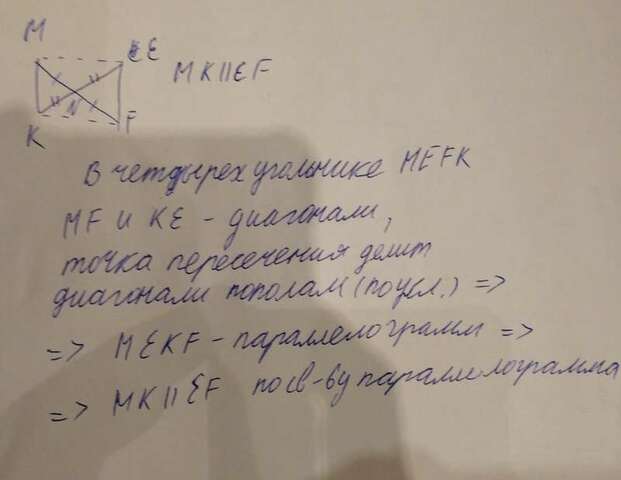 M E
MK||EF
N
K F
В четырех угольнике MEFK
MF и KE - диагонали,
точка пересечения делит
диагонали пополам (по усл.) =>
=> MEKF - параллелограмм =>
=> MK || EF по св-ву параллелограмма